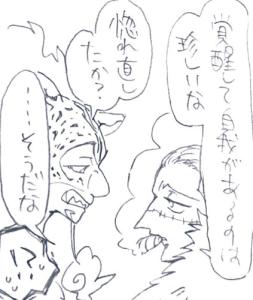 覚醒して自我があるのは
珍しいな
惚れ直し
たか？
……そうだな
!?